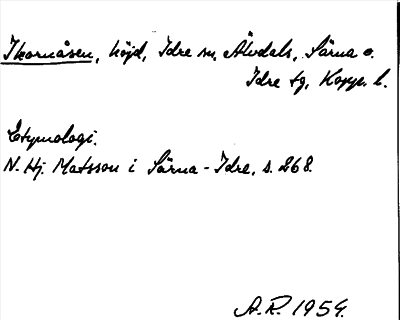 Ikornåsen, höjd, Idre sn, Älvdals, Särna o.
Idre tg, Kopp. l.
Etymologi.
N. Hj. Matsson i Särna-Idre, s. 268.
A.R. 1954.